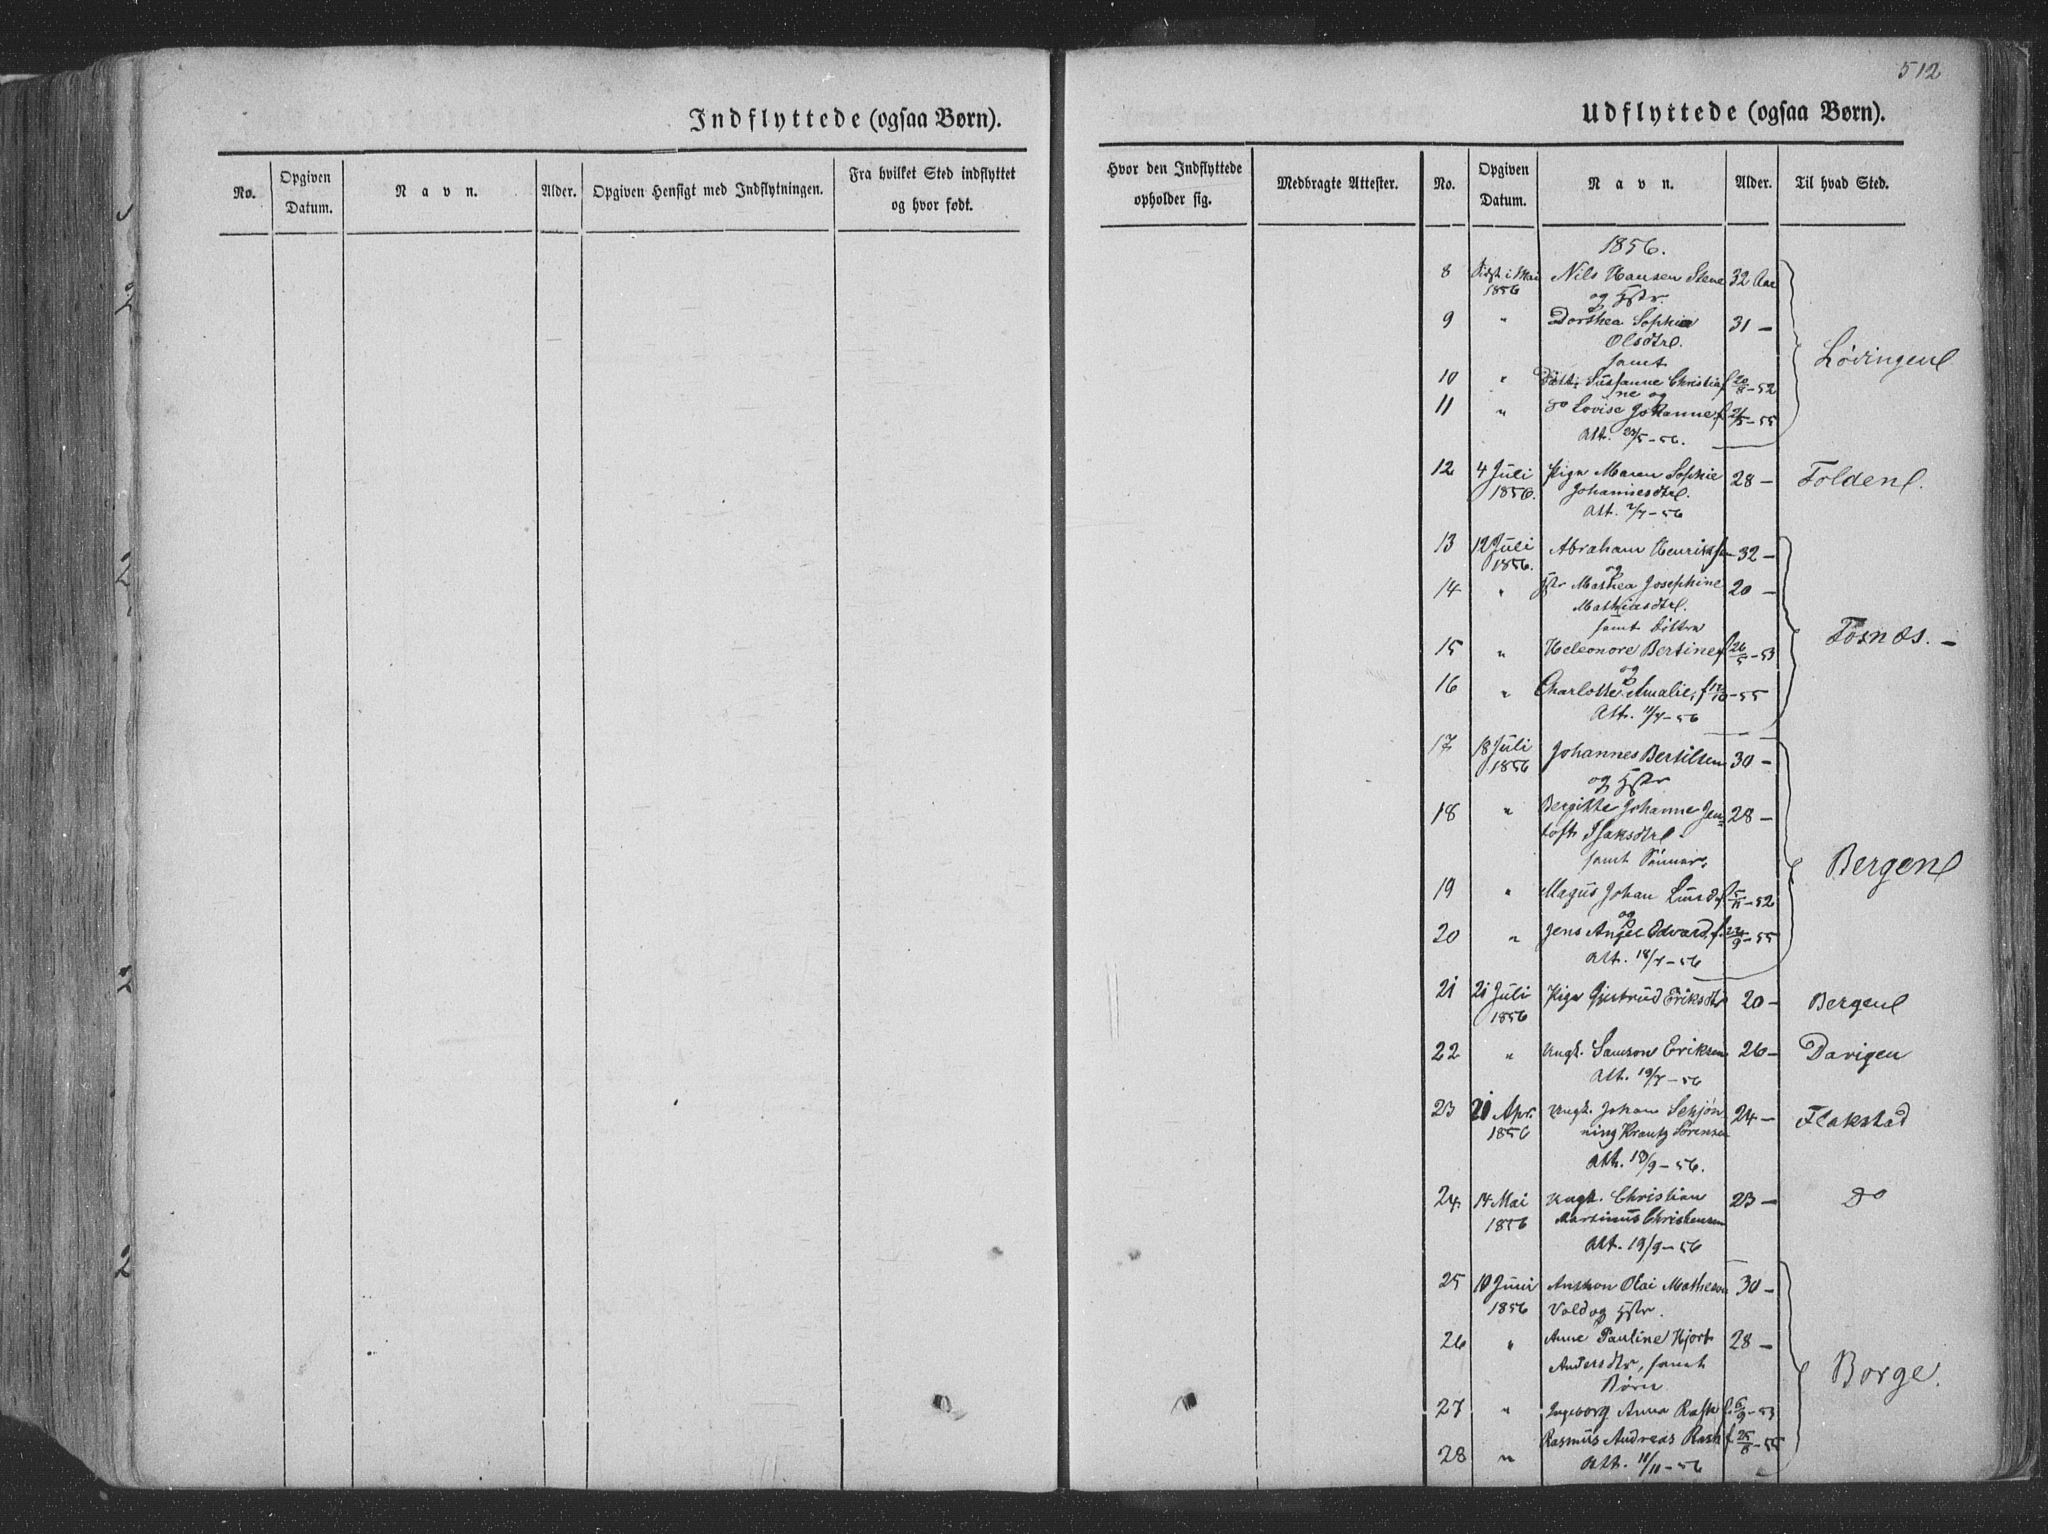 512
Indflyttede (ogsaa Børn).
No.
Opgiven Datum.
Navn.
Alder.
Opgiven Hensigt med Indflytningen.
Fra hvilket Sted indflyttet og hvor født.
Udflyttede (ogsaa Børn).
Hvor den Indflyttede opholder sig.
Medbragte Attester.
No.
Opgiven Datum.
Navn.
Alder.
Til hvad Sted.
1856.
8 i Mai Nils Hansen Stene 32 Aar
1856 og Hstr.
9 " Dorthea Sophia 31 —
Olsdtr.
samt
Lødingen
10 " Dött. Susanne Christia f 20/8 – 52
ne og
11 " do Lovise Johanne f 2/5 – 55
Att. 23/5 – 56.
12 4 Juli Pige Maren Sophie 28 — Folden.
1856. Johannesdtr.
Att. 2/7 – 56
13 12 Juli Abraham Henriksen 32 —
1856. og
14 " Hstr Mathea Josephine 20 —
Mathiasdtr.
samt Døttre
Fosnæs. —
15 " Heleonore Bertine f 26/5 – 53
og
16 " Charlotte Amalie, f 12/10 – 55
Att. 11/7 – 56
17 18 Juli Johannes Bertilsen 30 —
1856 og Hstr
18 " Bergitte Johanne Jen- 28 —
toft Isaksdtr
samt Sønner,
Bergen
19 " Magus Johan Lund f 5/11 – 52
og
20 " Jens Angel Edvard, f. 24/9 – 55
Att. 18/7 – 56
21 21 Juli Pige Gjertrud Eriksdtr 20 — Bergen
1856
22 " Ungk. Samson Eriksen 26 — Davigen
Att. 19/7 – 56
23 21 Apr. Ungk. Johan Schjøn 24 — Flakstad
1856 ning Krantz Sørensen
Att. 18/9 – 56.
24. 14 Mai Ungk. Christian 23 — do
1856 Martinus Christensen
Att. 19/9 – 56
25 10 Juni Antхon Olai Mathesen 30 —
1856 Vold og Hstr.
26 " Anne Pauline Hjort 28 —
Andersdtr, samt
Børn
Borge.
27 " Ingeborg Anna Rask f. 6/9 – 53
28 " Rasmus Andreas Rask f. 25/8 – 55
Att. 11/11 – 56